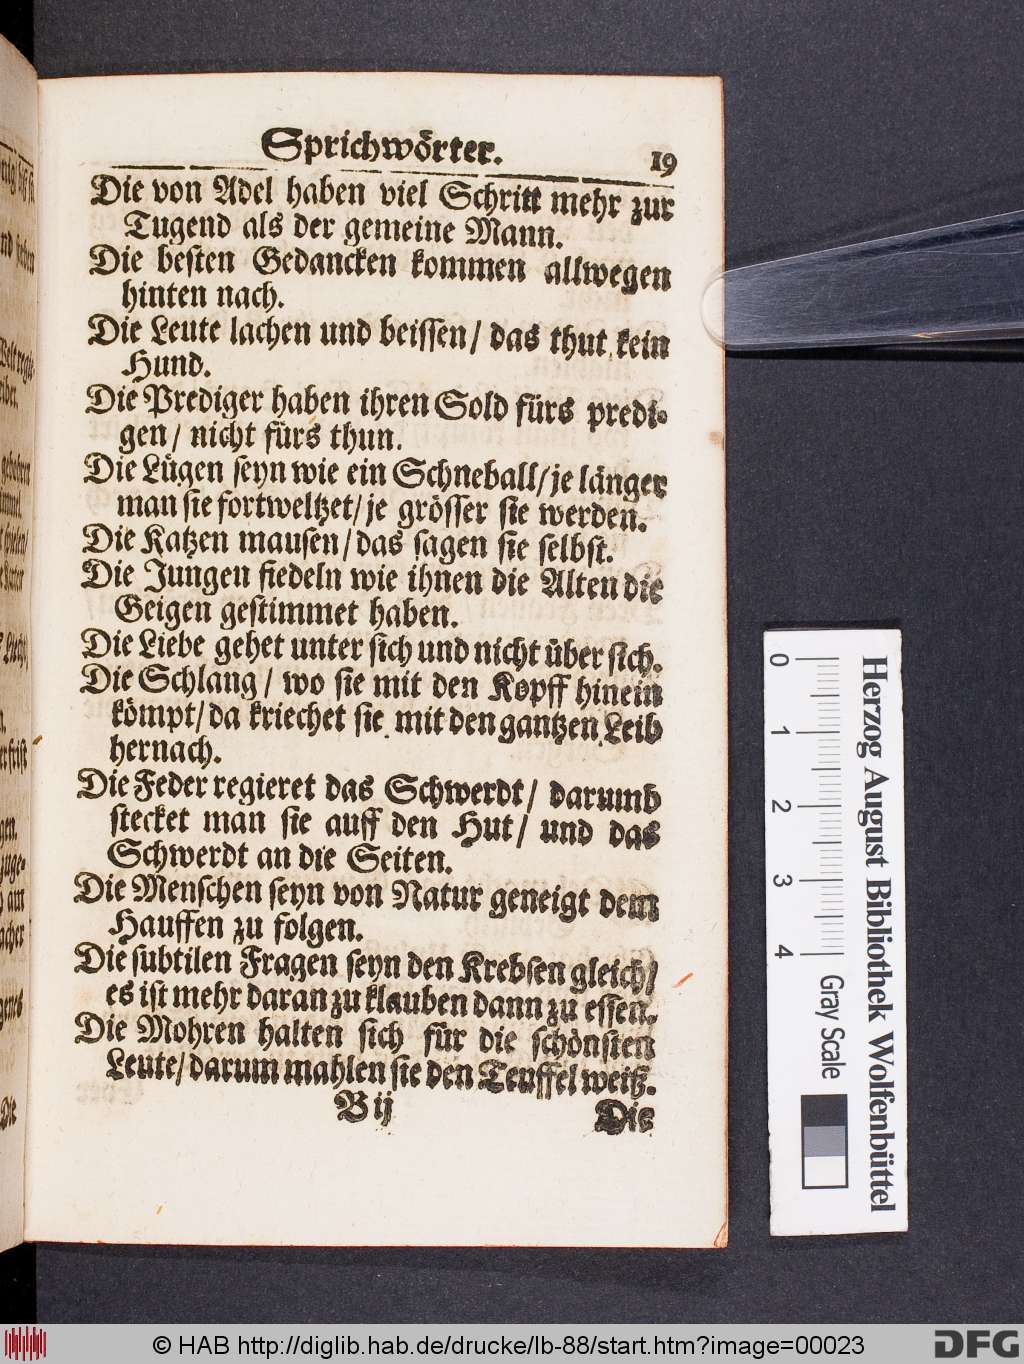 Sprichwörter. 19
Die von Adel haben viel Schritt mehr zur
Tugend als der gemeine Mann.
Die besten Gedancken kommen allwegen
hinten nach.
Die Leute lachen und beissen/ das thut kein
Hund.
Die Prediger haben ihren Sold fürs predi-
gen/ nicht fürs thun.
Die Lügen seyn wie ein Schneball/ je länger
man sie fortweltzet/ je grösser sie werden.
Die Katzen mausen/ das sagen sie selbst.
Die Jungen fiedeln wie ihnen die Alten die
Geigen gestimmet haben.
Die Liebe gehet unter sich und nicht über sich.
Die Schlang/ wo sie mit den Kopff hinein
kömpt/ da kriechet sie mit den gantzen Leib
hernach.
Die Feder regieret das Schwerdt/ darumb
stecket man sie auff den Hut/ und das
Schwerdt an die Seiten.
Die Menschen seyn von Natur geneigt dem
Hauffen zu folgen.
Die subtilen Fragen seyn den Krebsen gleich/
es ist mehr daran zu klauben dann zu essen.
Die Mohren halten sich für die schönsten
Leute/ darum mahlen sie den Teuffel weiß.
B ij Die
0 1 2 3 4
Herzog August Bibliothek Wolfenbüttel
Gray Scale
© HAB http://diglib.hab.de/drucke/lb-88/start.htm?image=00023
DFG